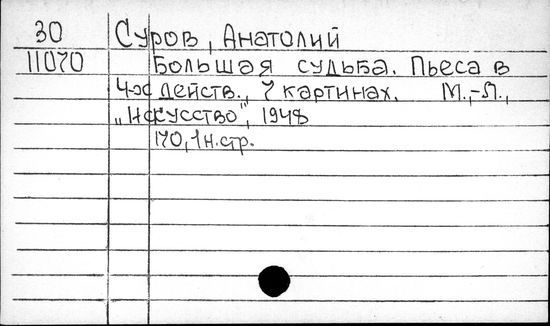 30 Суров, Анатолий
11070 Большая судьба. Пьеса в
4-х действ., 7 картинах. М.,-Л.,
„Искусство", 1948
170, 1 н.стр.